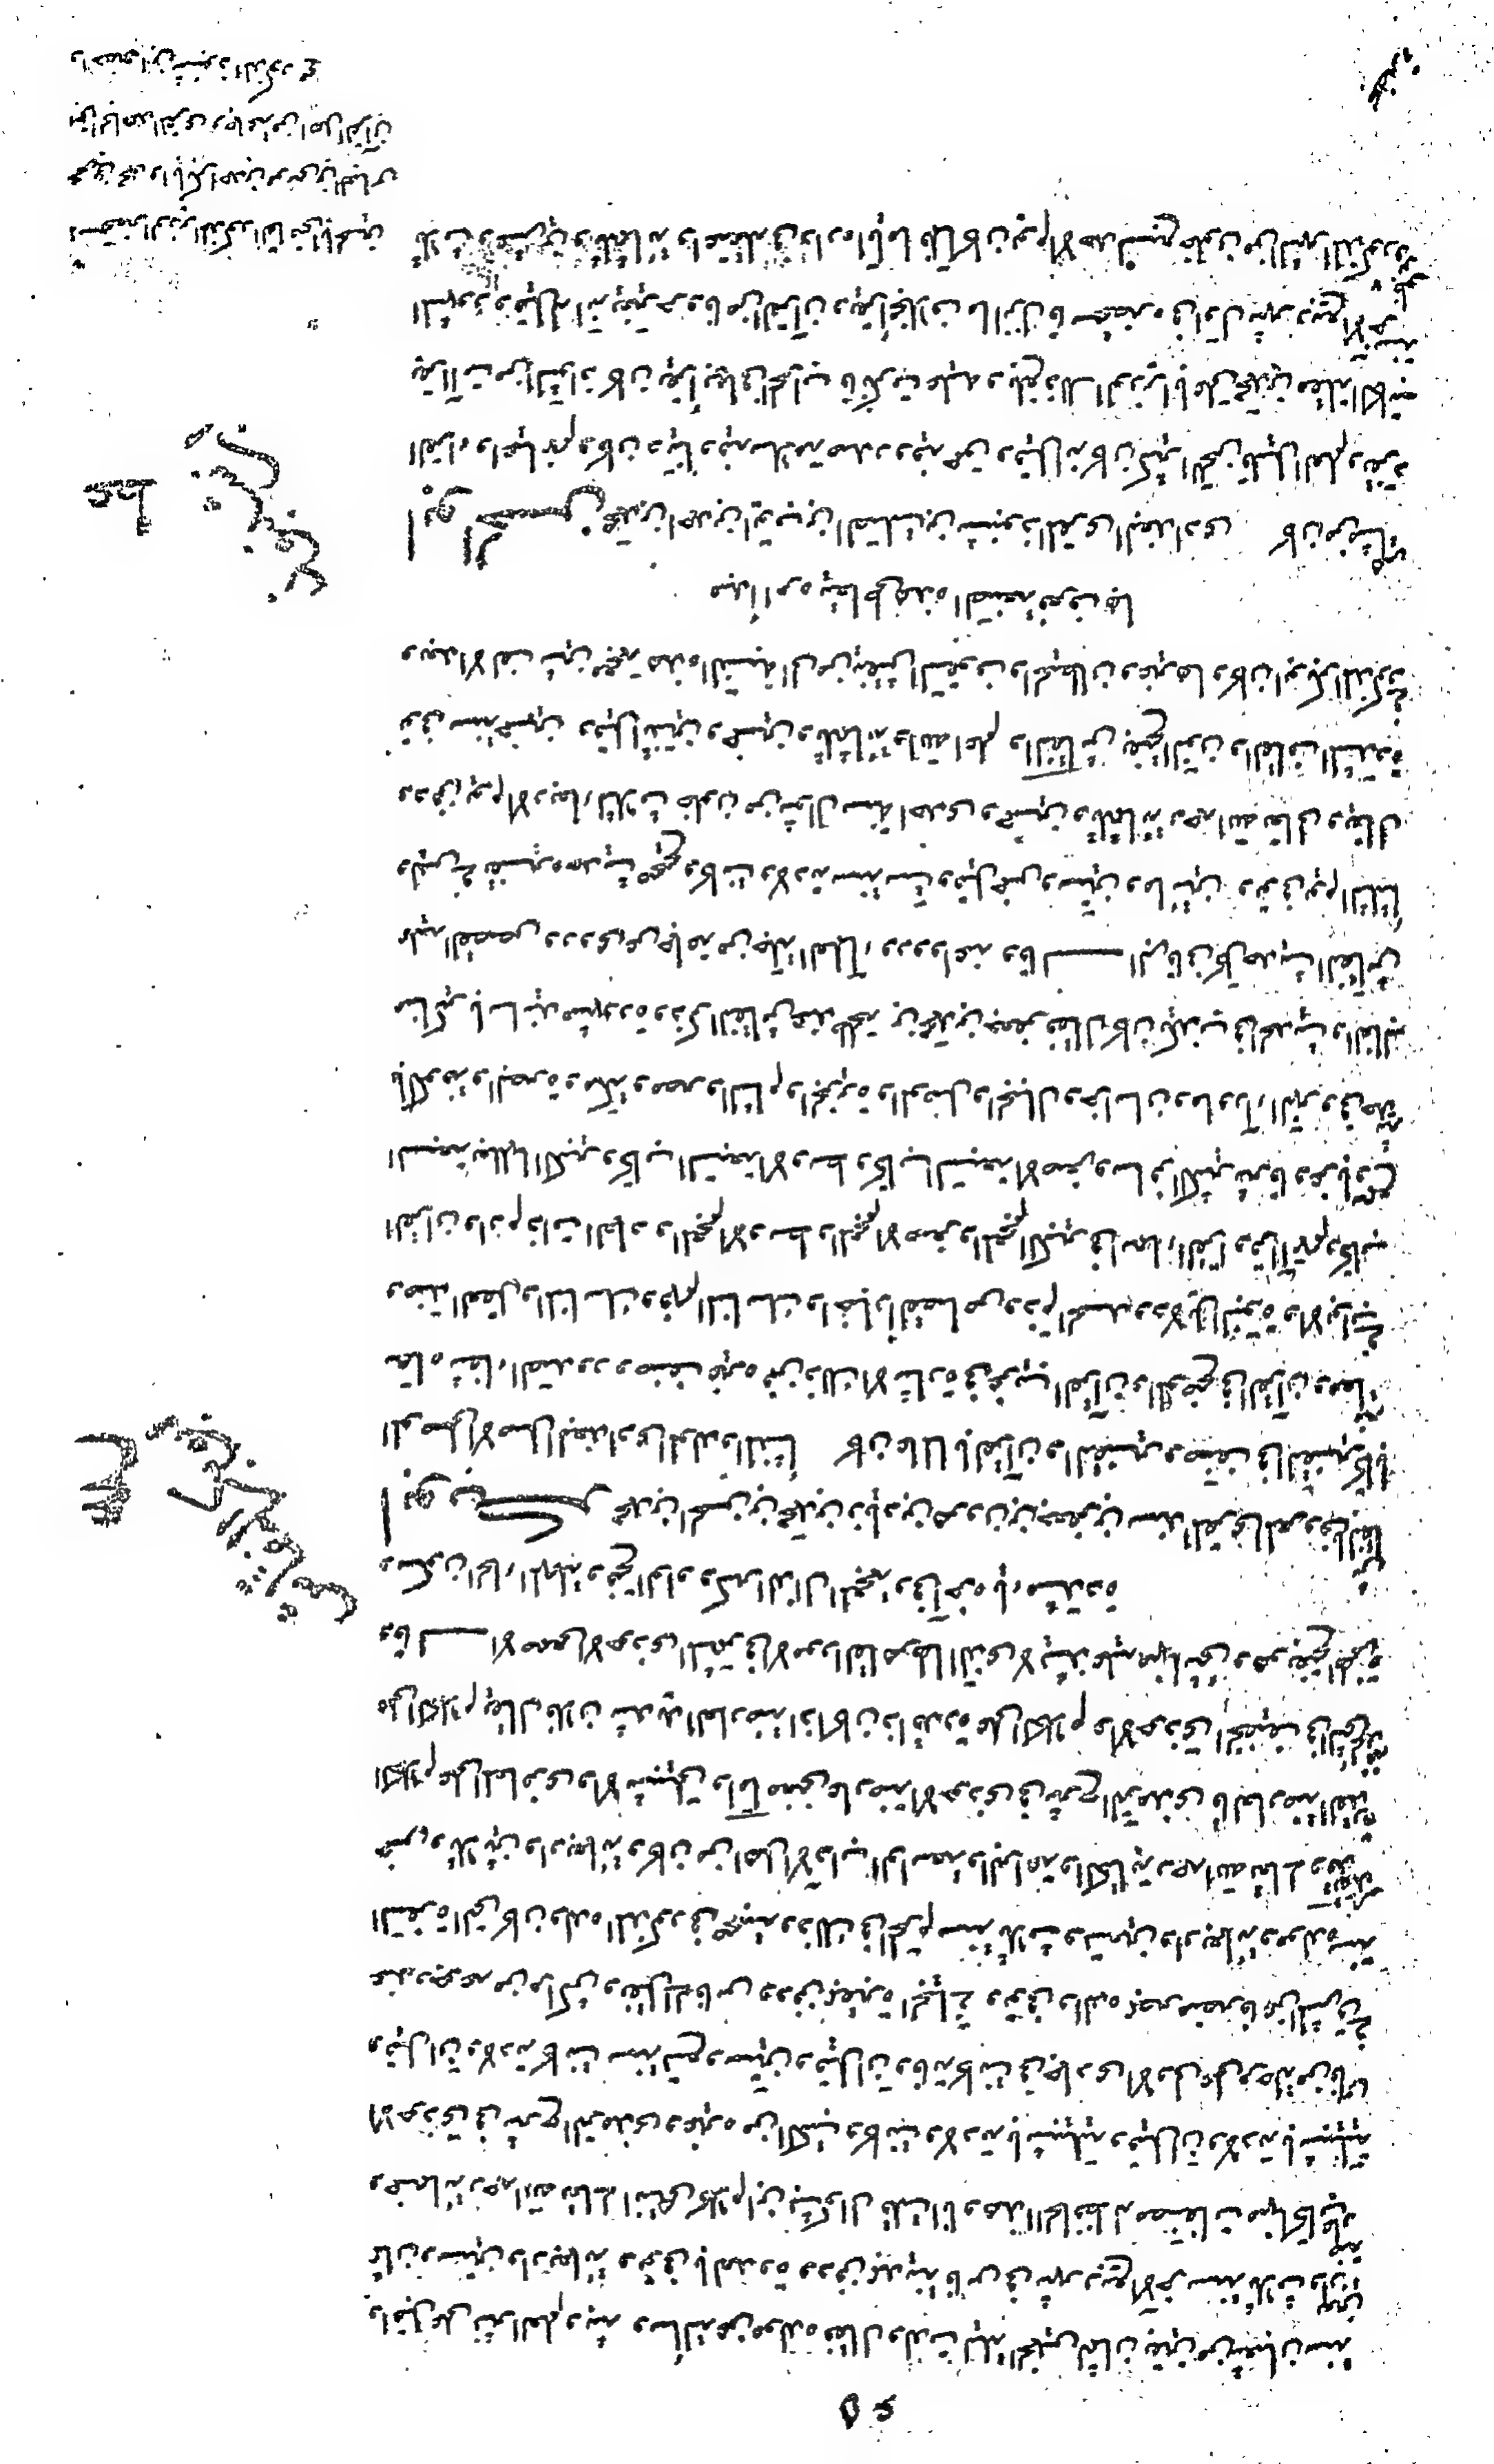 واقبل على نشر العلم وبثه وسألته عن مولده فقال ولدت ليلة الخميس لثمان بقين من شعبان سنة
ثمان وستين واربعمائة وتوفي بالعدوة ودفن بمدينة فاس في شهر ربيع الاخر سنة ثلاث واربعين
وخمسمائة رحمه الله تعالى انتهى كلام ابن بشكوال قلت انا وهذا الحافظ له مصنفات منها كتاب عارضة
الاحوذي في شرح الترمذي وغيره من الكتب وكانت ولادته باشبيلية وقيل ان ولادته باشبيلية
وقيل ان ولادته كانت سنة تسع وستين وقيل ان وفاته كانت في جمادى الاولى على مرحلة من فاس
عند رجوعه من مراكش ونقل الى فاس ودفن بمقبرة الجياني وتوفي والده بمصر منصرفا عن المشرق في
السفرة التي كان ولده المذكور في صحبته وذلك في المحرم سنة ثلاث وتسعين واربعمائة ومولده سنة
خمس وثلاثين واربعمائة وكان من اهل الاداب الواسعة والبراعة والكتابة رحمه الله تعالى وقد تقدم
الكلام على المعافري والاشبيلي واما معنى عارضة الاحوذي في شرح الترمذي فالعارضة القدرة
على الكلام يقال فلان شديد العارضة اذا كان ذا قدرة على الكلام والاحوذي الخفيف في الشيء لحذقه
وقال الاصمعي الاحوذي المشمر في الامور القاهر لها الذي لا يشذ عليه منها شيء وهو بفتح الهمزة
وسكون الحاء المهملة وفتح الواو وكسر الذال المعجمة وفي اخره ياء مشددة
ابو بكر محمد بن الحسن بن محمد بن زياد بن هارون بن جعفر بن سند المقرئ المعروف بالنقاش
الموصلي الاصل البغدادي المولد والمنشأ كان عالما بالقرآن والتفسير وصنف في التفسير كتابا
سماه شفاء الصدور وصنف غيره فمن ذلك الاشارة في غريب القرآن والموضح في القرآن ومعانيه
وضد العقل والمناسك وفهم المناسك واخبار القصاص وذم الحسد ودلائل النبوة والابواب في
القرآن وارم ذات العماد والمعجم الاوسط والمعجم الاصغر والمعجم الكبير في اسماء القراء وقراءاتهم وكتاب
السبعة بعللها الكبير وكتاب السبعة الاوسط وكتاب السبعة الاصغر وسافر الكثير شرقا وغربا وكتب
بالكوفة والبصرة ومكة ومصر والشام والجزيرة والموصل والجبال وخراسان وما وراء النهر وفي حديثه
مناكير باسانيد مشهورة وذكر النقاش عند طلحة بن محمد بن جعفر فقال كان يكذب في الحديث والغالب
عليه القصص وروى عن جماعة من جلة العلماء ورووا عنه وقال البرقاني كل حديث النقاش
وليس في تفسيره حديث صحيح وكانت ولادته سنة ست وقيل خمس وستين ومائتين وتوفي يوم الثلثاء
ودفن يوم الاربعاء لثلاث خلون من شوال سنة احدى وخمسين وثلثمائة رحمه الله تعالى
وخمسين وثلثمائة والله اعلم والنقاش بفتح النون والقاف المشددة
وبعد الالف شين معجمة هذه النسبة الى من ينقش السقوف والحيطان وغيرها وكان ابو بكر المذكور في
مبدأ امره يتعاطى هذه الصنعة فعرف بها
ابو الحسن محمد بن احمد بن ايوب بن الصلت بن شنبوذ المقرئ البغدادي كان من مشاهير
القراء واعيانهم وكان دينا وفيه سلامة صدر وفيه حمق وقيل انه كان كثير اللحن قليل العلم وتفرد
بقراءات من الشواذ كان يقرأ بها في المحراب فانكرت عليه وبلغ ذلك الوزير ابا علي محمد بن مقلة الكاتب
المشهور وقيل له انه يغير حروفا من القرآن ويقرأ بخلاف ما انزل فاستحضره في اول شهر ربيع الاخر سنة
ثلاث وعشرين وثلثمائة واعتقله في داره اياما فلما كان يوم الاحد لسبع خلون من الشهر المذكور
استحضر الوزير المذكور القاضي ابا الحسين